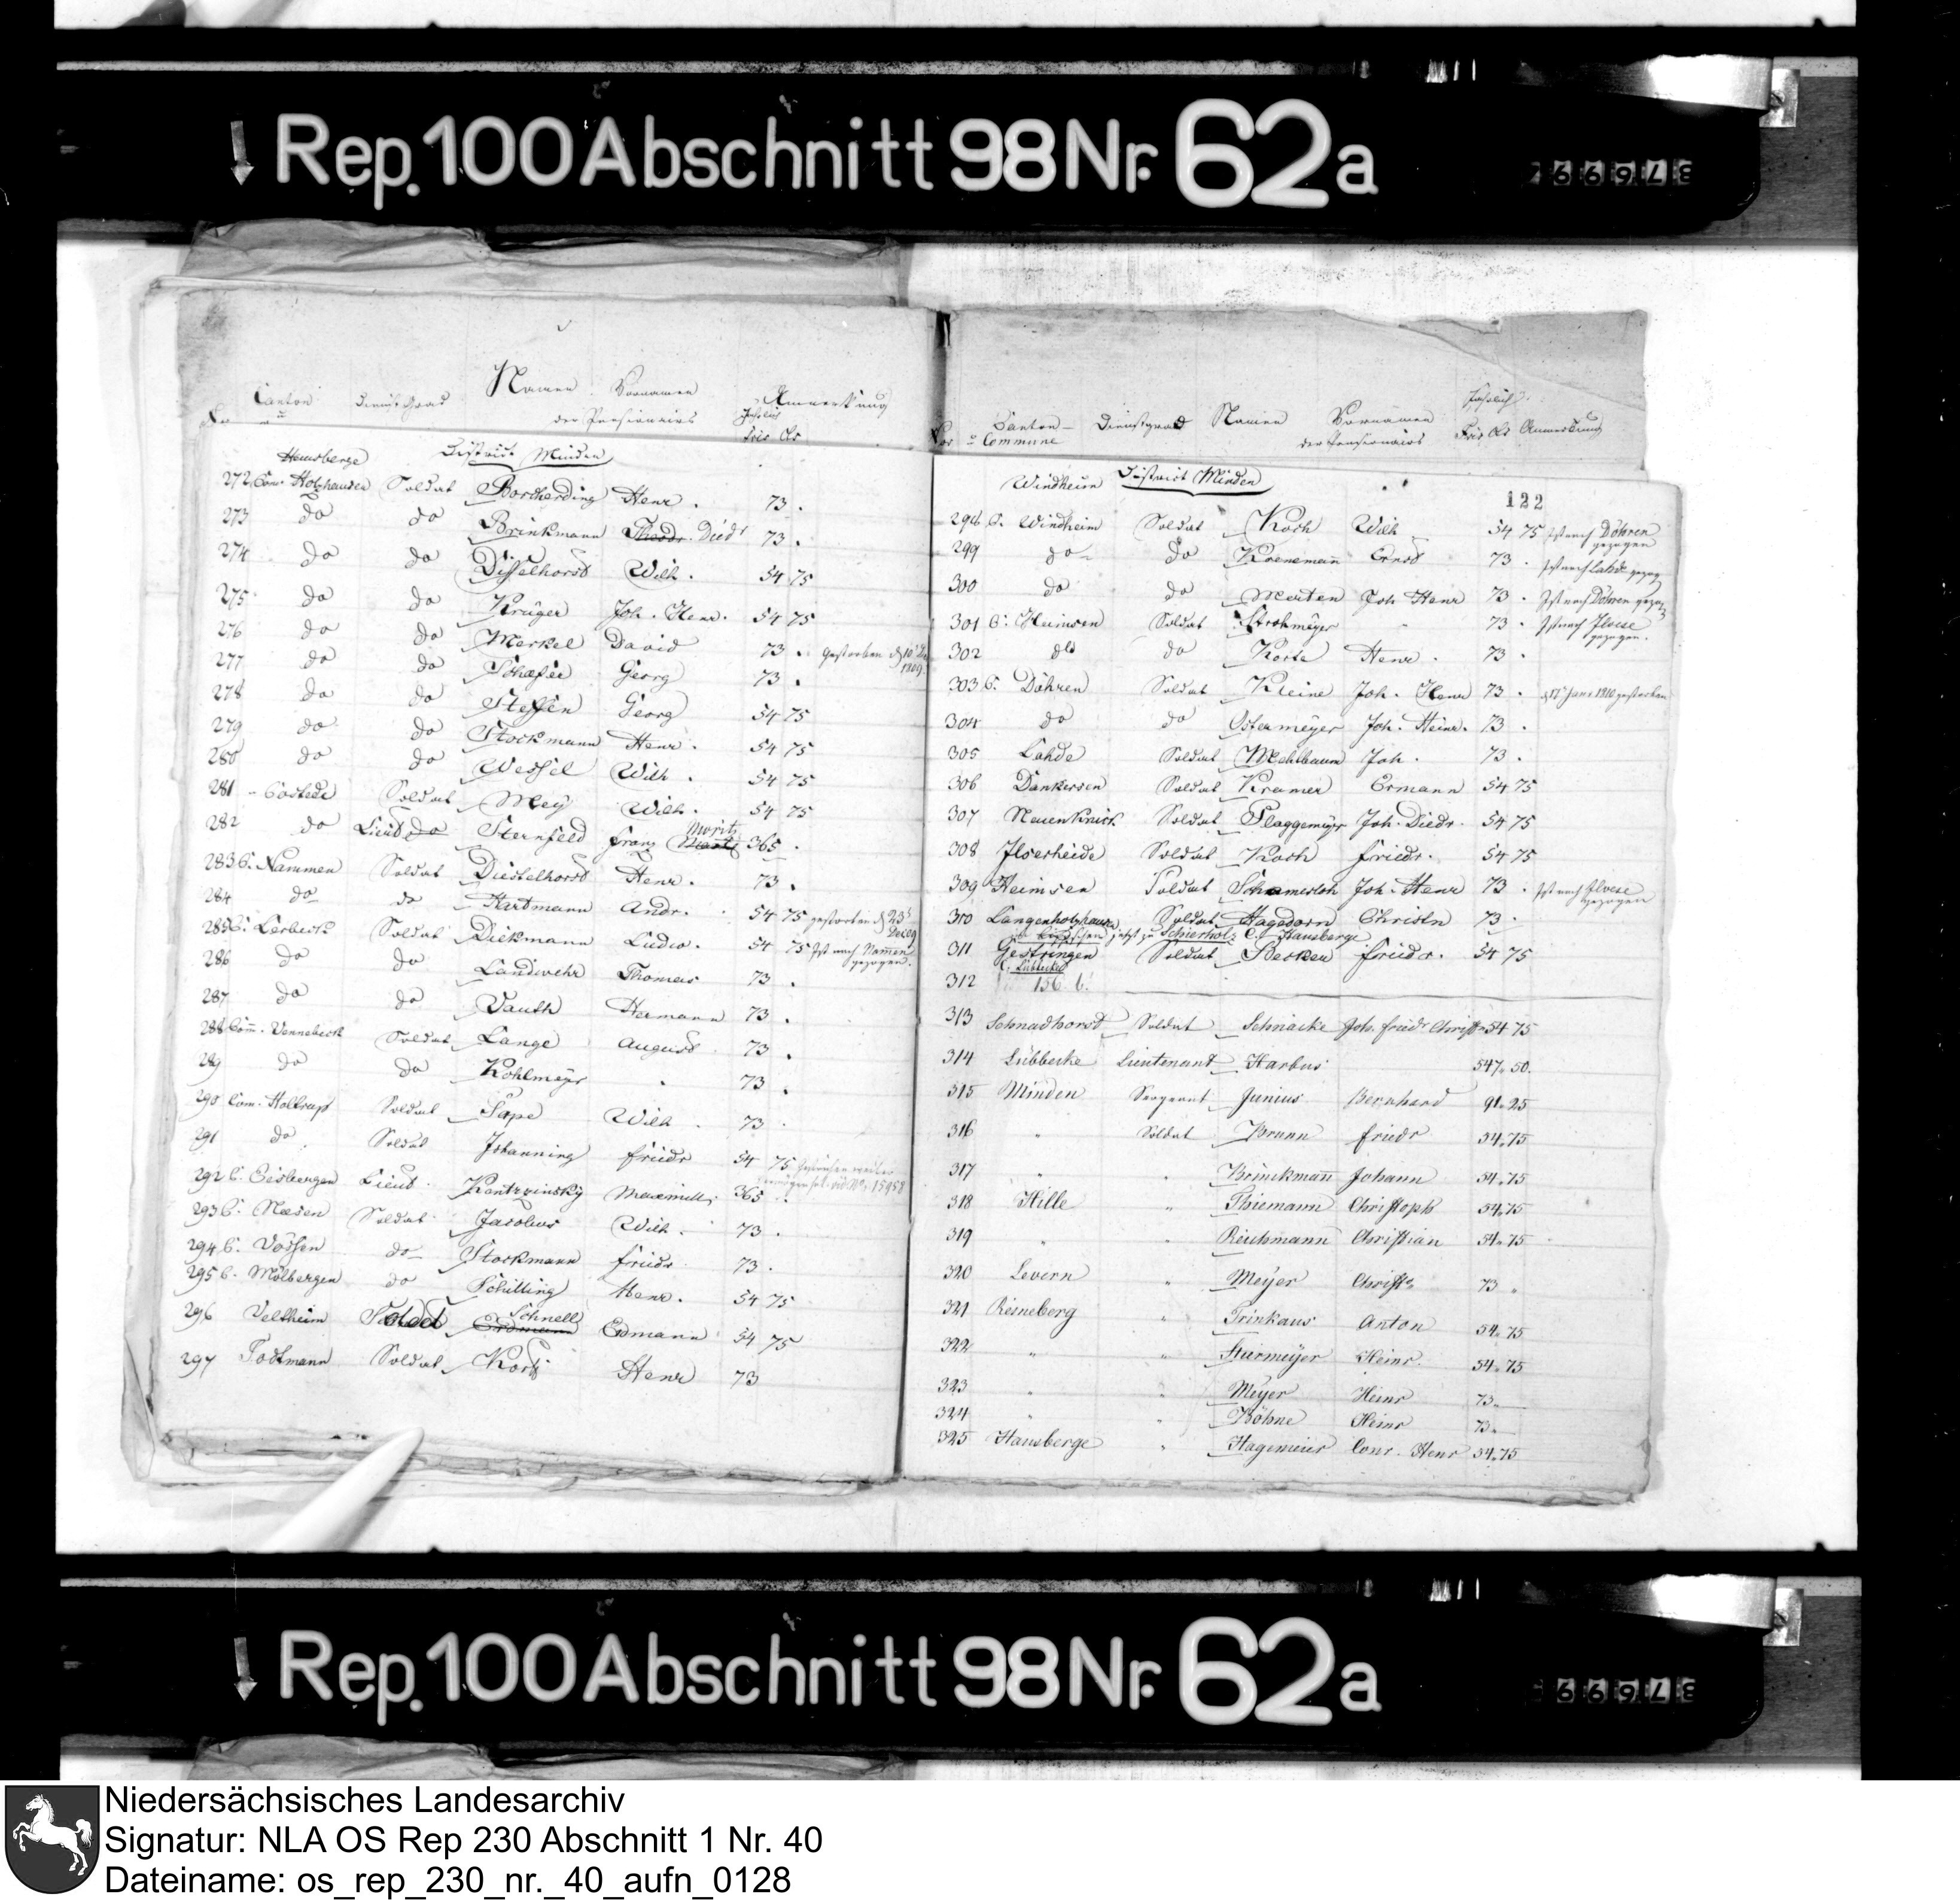 Rep. 100 Abschnitt 98 Nr. 62a
37699
Namen Vornamen Anmerkung
Canton Dienst Grad der Pensionairs Jährlich
Frcs Cts
Hausberge District Minden
272 Com. Holzhausen Soldat Borcherding Henr. 73 .
273 do do Brinkmann Diedr 73 .
274 do do Disselhorst Wilh. 54 75
275 do do Krüger Joh. Henr. 54 75
276 do do Merkel David 73 . gestorben 1809.
277 do do Schaefer Georg 73 .
278 do do Steffen Georg 54 75
279 do do Stockmann Henr. 54 75
280 do do Wessel Wilh. 54 75
281 Costedt Soldat Mey Wilh. 54 75
282 do Lieut do Sternfeld Franz Moritz 365 .
283 C. Nammen Soldat Diestelhorst Henr. 73 .
284 do do Hartmann Andr. 54 75 gestorben d 23
285 C. Lerbeck Soldat Diekmann Ludw. 54 75 Ist nach Nammen gezogen.
286 do do Landwehr Thomas 73 .
287 do do Vauth Hermann 73 .
288 Com. Vennebeck Soldat Lange August 73 .
289 do do Kohlmeyer " 73 .
290 Com. Holtrup Soldat Sape Wilh. 73 .
291 do Soldat Johanning Friedr 54 75
292 C. Eisbergen Lieut. 365 . 15958
293 C. Neesen Soldat Jacobus Wilh. 73 .
294 C. Vössen do Stockmann Friedr. 73 .
295 C. Mölbergen do Schilling Henr. 54 75
296 Veltheim Soldat Erdmann Schnell Erdmann 54 75
297 Todtmann Soldat Korf Henr 73
Canton Dienstgrad Namen Vornamen Jährlich
Nro u Commune der Pensionairs Frcs Cts Anmerkung
Windheim District Minden
122
298 C. Windheim Soldat Koch Wilh 54 75 Ist nach Döhren gezogen
299 do do Krenemann Ernst 73 . Ist nach Lahde gezog
300 do do Meuten Joh Henr 73 . Ist nach Döhren gezog
301 C. Heimsen Soldat Strohmeyer " 73 . Ist nach Ilvese gezogen.
302 do do Korte Henr. 73 .
303 C. Döhren Soldat Kleine Joh. Henr 73 . d 17 Janr 1810 gestorben
304 do do Ostermeyer Joh. Heinr. 73 .
305 Lahde Soldat Mehlbaum Joh. 73 .
306 Dankersen Soldat Kramer Ermann 54 75
307 Neuenknick Soldat Plaggemeyer Joh. Diedr. 54 75
308 Ilserheide Soldat Koch Friedr. 54 75
309 Heimsen Soldat Schameloh Joh. Henr 73 . Ist nach Ilvese gezogen
310 Langenholzhausen Soldat Hagedorn Christn 73 .
jetzt zu Schierholz C. Hausberge
311 Gestringen Soldat Becker Friedr. 54 75
C. Lübbecke
312 156 b.
313 Schnadhorst Soldat Schnacke Joh. Friedr Christ 54 75
314 Lübbecke Lieutenant Harbus 547. 50.
315 Minden Sergeant Junius Bernhard 91. 25
316 " Soldat Brunn Friedr 54. 75
317 " " Brinckmañ Johann 54. 75
318 Hille " Thiemann Christoph 54. 75
319 " " Reichmann Christian 54. 75
320 Levern " Meyer Christ. 73 "
321 Reineberg " Trinkaus Anton 54. 75
322 " " Sturmeyer Heinr. 54. 75
323 " " Meyer Heinr 73.
324 " " Böhne Heinr 73.
325 Hausberge " Hagemeier Conr. Henr 54. 75
Rep. 100 Abschnitt 98 Nr. 62a
37699
Niedersächsisches Landesarchiv
Signatur: NLA OS Rep 230 Abschnitt 1 Nr. 40
Dateiname: os_rep_230_nr._40_aufn_0128